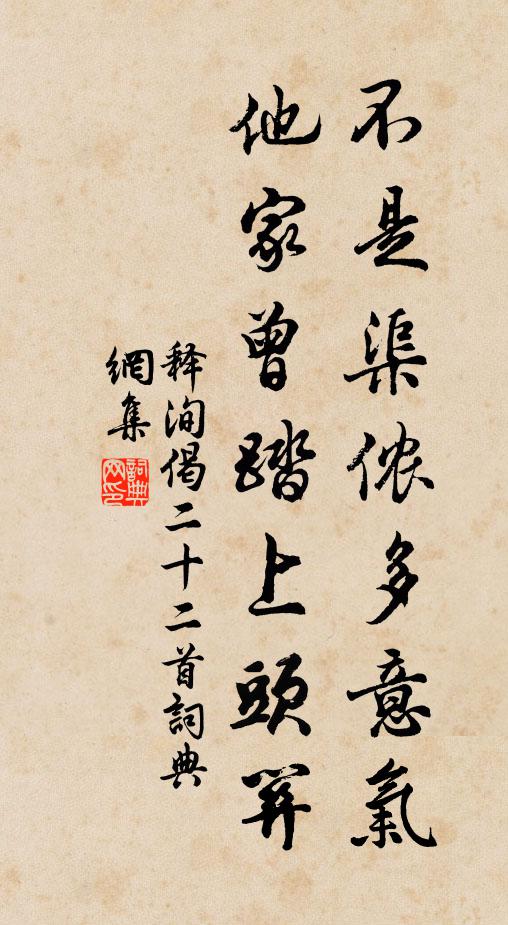 不是渠侬多意氣
他家曾踏上頭関
释洵偈二十二首詞典
網集
詞典
网印